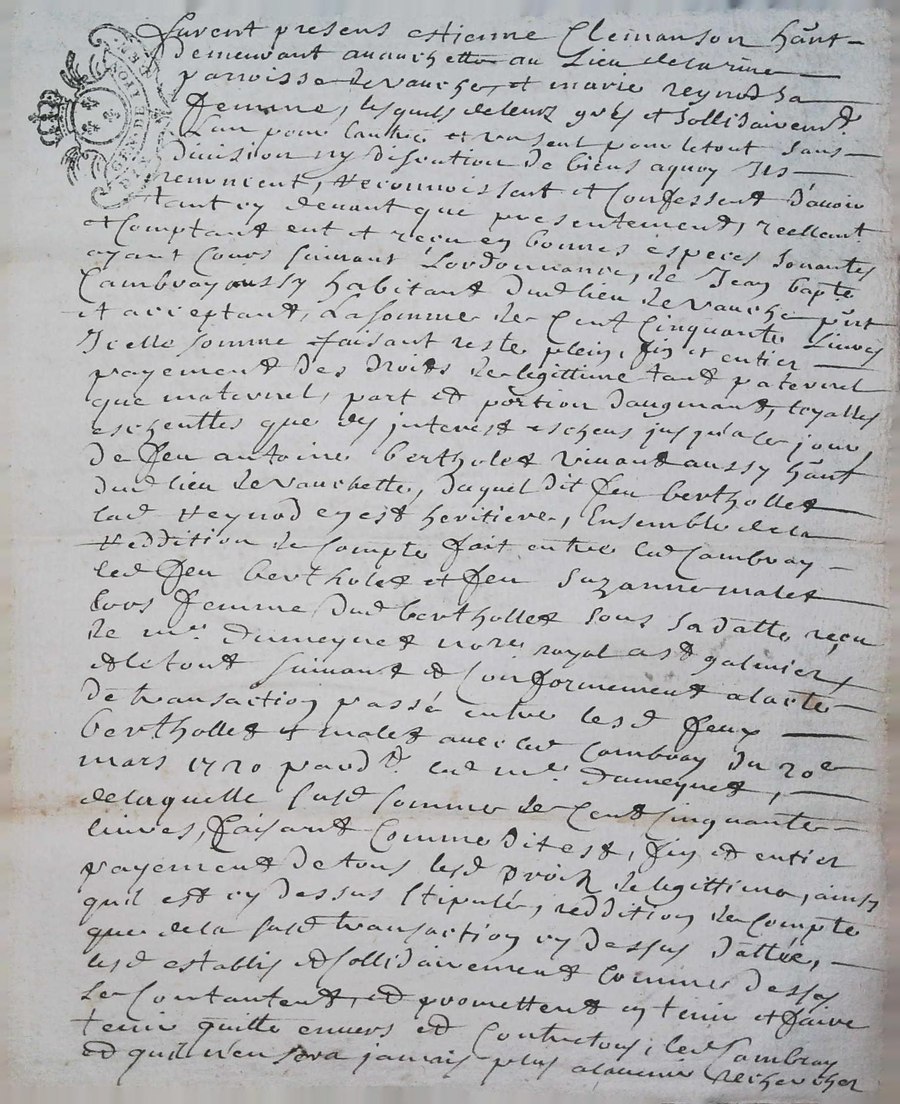 furent presens estienne Clemanson hãnt
demeurant auauchette au Lieu dela rme
parroisse de vauche, et marie reynod sa
femme, lesquels de leurs grés et sollidairemt
Lun pour lautre et un seul pour le tout sans
division ny discution de biens aquoy Ils
renoncent, Reconnoissent et Confessent d'avoir
tant cy devant que presentement, reellemt
et Comptant eut et reçu en bonnes especes sonantes
ayant Cours suivant Lordonnance, de Jean bapte
Cambray aussy habitant dud lieu de vauche pñt
et acceptant, La somme de Cent Cinquante Livres
Icelle somme faisant reste plein, fin et entier
payement des droits de legittime tant paternel
que maternel, part et portion daugmant, loyalles
escheuttes que des interest escheus jusqua ce jour
de feu antoine bertholet vivant aussy hãnt
dud lieu de vauchette, duquel dit feu berthollet
lad Reynod en est heritiere, Ensemble de la
Reddition de Compte fait entre led Cambray
led feu bertholet et feu Suzanne malet
lors femme dud berthollet sous sa datte, reçu
de me. Dumeynet nore royal a st galmier,
et le tout suivant et Conformement a lacte
de transaction passé entre lesd feux
berthollet et malet avec led Cambray du 20e
mars 1720 pardt. led me. Dumeynet,
de laquelle susd somme de Cent Cinquante
livres, faisant Comme dit est, fin et entier
payement de tous lesd droits de legittime, ainsy
quil est cy dessus stipulé, reddition de Compte
que de la susd transaction cy dessus dattée,
lesd establis et sollidairement Comme dessus
se Contantent, et promettent en tenir et faire
tenir quitte envers et Contre tous, led Cambray
et quil n'en sera jamais plus alavenir recherchez